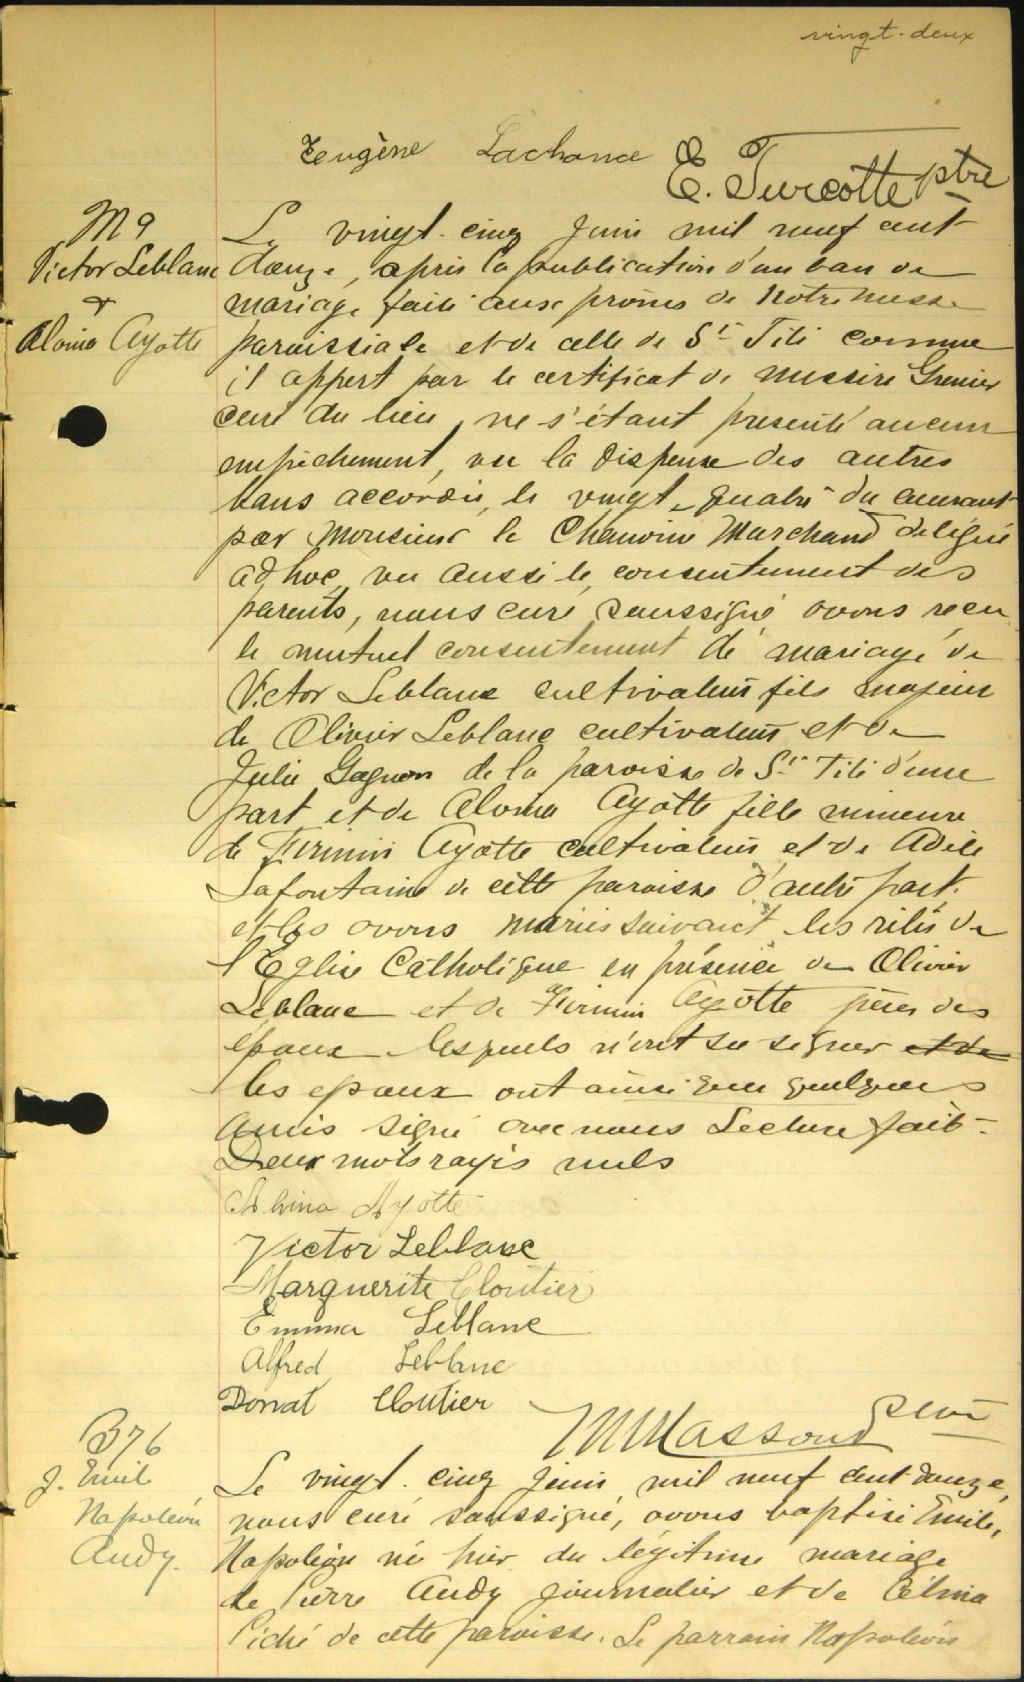 vingt-deux
Eugène Lachance E. Turcotte ptre
M 9
Victor Leblanc
&
Alvina Ayotte
Le vingt-cinq juin mil neuf cent
douze, après la publication d'un ban de
mariage faite aux prônes de notre messe
paroissiale et de celle de St Tite comme
il appert par le certificat de messire Grenier
curé du lieu, ne s'étant présenté aucun
empêchement, vu la dispense des autres
bans accordée, le vingt-quatre du courant
par Monsieur le Chanoine Marchand délégué
ad hoc, vu aussi le consentement des
parents, nous curé soussigné avons reçu
le mutuel consentement de mariage de
Victor Leblanc cultivateur fils majeur
de Olivier Leblanc cultivateur et de
Julie Gagnon de la paroisse de St Tite d'une
part et de Alvina Ayotte fille mineure
de Firmin Ayotte cultivateur et de Adèle
Lafontaine de cette paroisse d'autre part.
et les avons mariés suivant les rites de
l'Eglise Catholique en présence de Olivier
Leblanc et de Firmin Ayotte pères des
époux lesquels n'ont su signer et de
les epoux ont ainsi que quelques
amis signé avec nous Lecture faite.
Deux mots rayés nuls
Alvina Ayotte
Victor Leblanc
Marguerite Cloutier
Emma Leblanc
Alfred Leblanc
Donat Cloutier
Massout curé
B 76
J. Emile
Napoléon
Audy.
Le vingt-cinq juin mil neuf cent douze,
nous curé soussigné, avons baptisé Emile,
Napoléon né hier du légitime mariage
de Pierre Audy journalier et de Célina
Piché de cette paroisse. Le parrain Napoléon